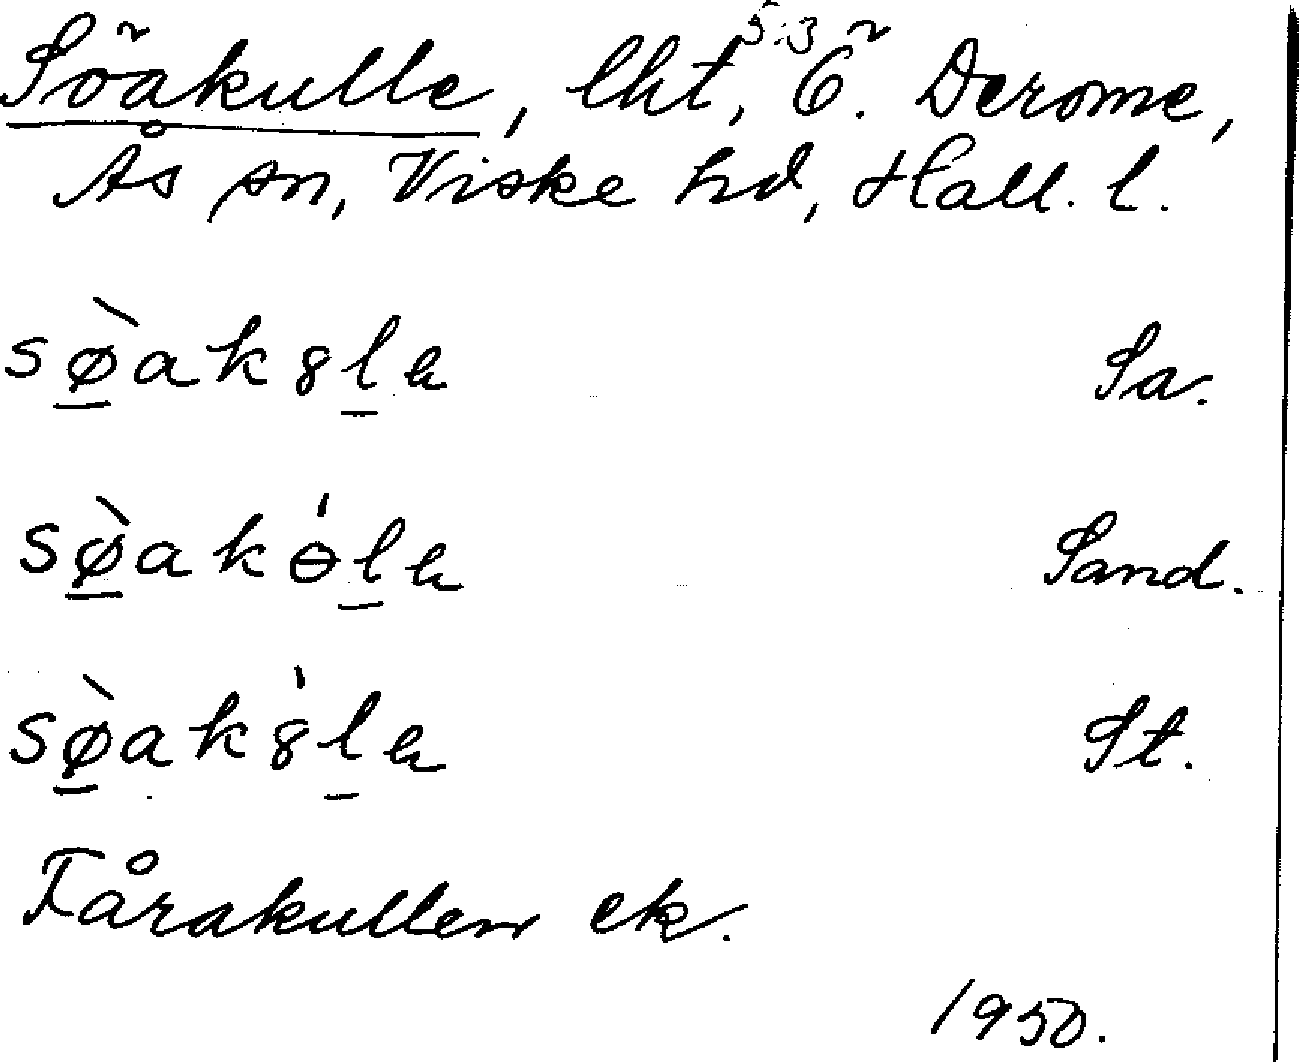 Söakulle, lht, 5:3 Ö. Derome,
Ås sn, Viske hd, Hall. l.
sø̀ak8lə Sa.
sø̀akɵ́lə Sand.
sø̀ak8́lə St.
Fårakullen ek.
1950.